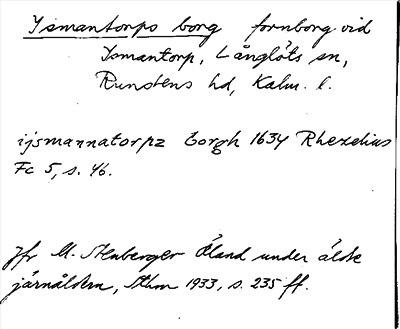 Ismantorps borg fornborg vid
Ismantorp, Långlöts sn,
Runstens hd, Kalm. l.
ijsmannatorpz borgh 1634 Rhezelius
Fc 5, s. 46.
Jfr M. Stenberger Öland under äldre
järnåldern, Sthm 1933, s. 235 ff.